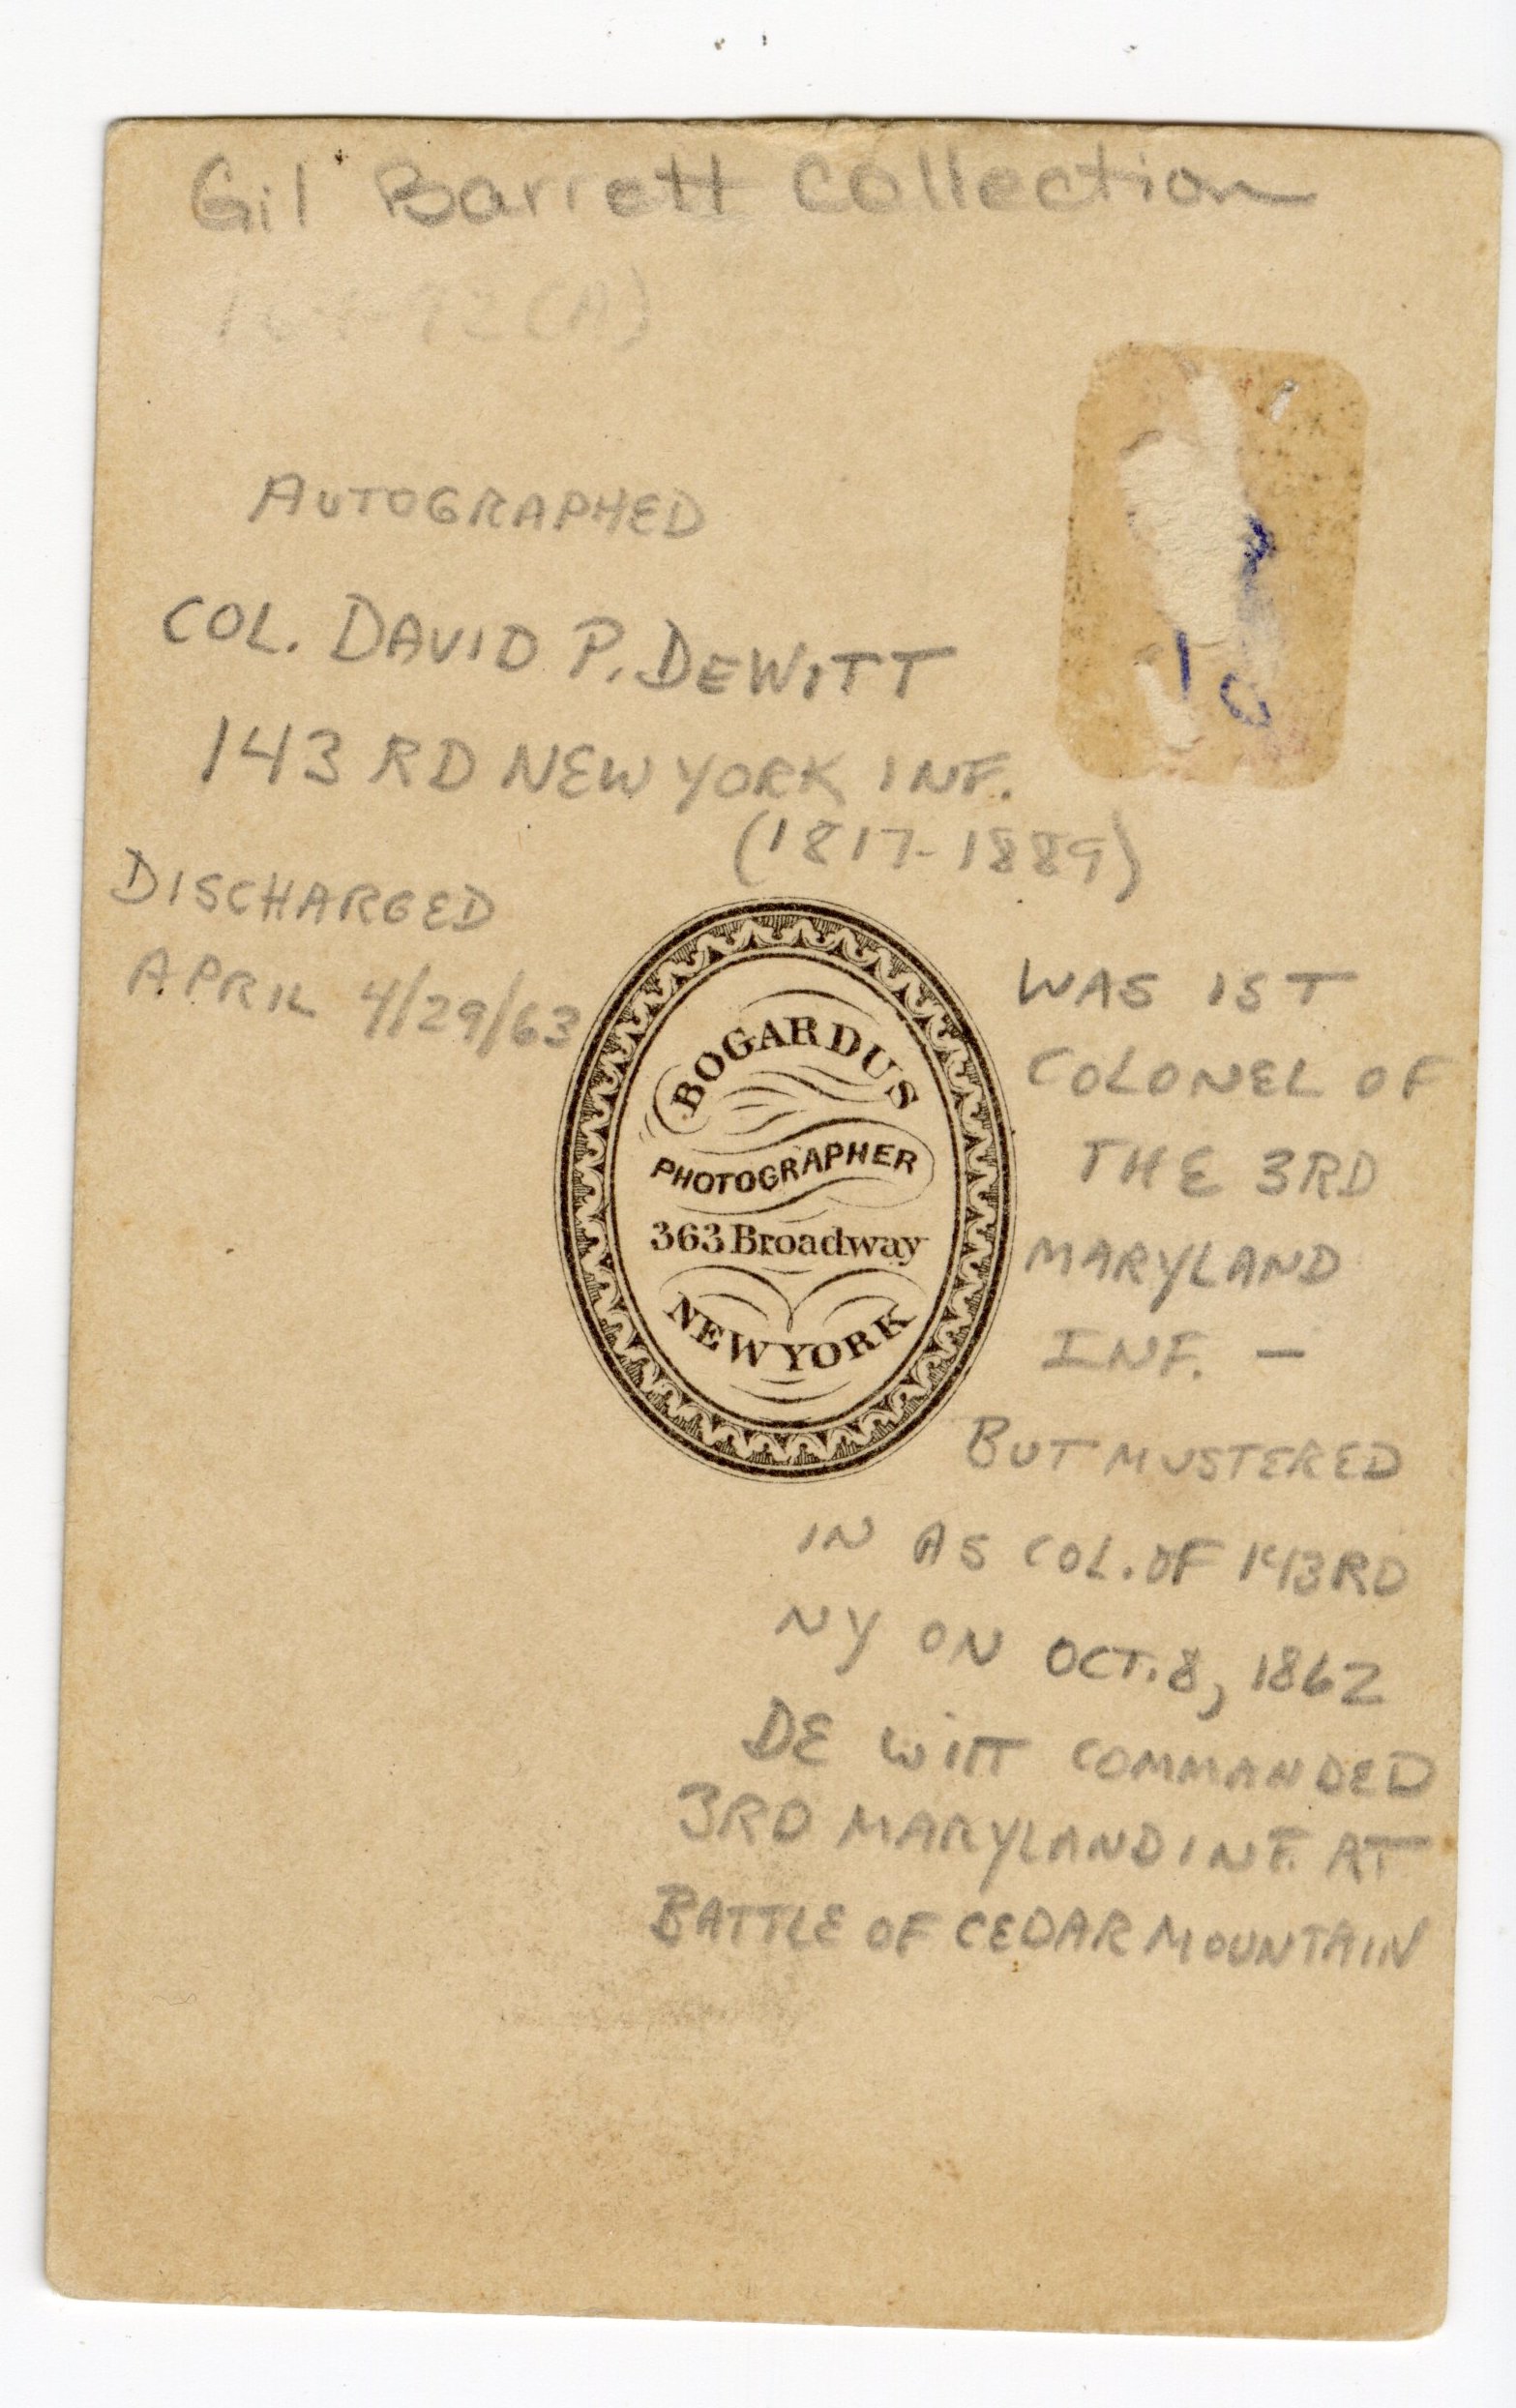 Gil Barrett Collection
AUTOGRAPHED
COL. DAVID P. DEWITT
143 RD NEW YORK INF.
(1817-1889)
DISCHARGED
APRIL 4/29/63
BOGARDUS
PHOTOGRAPHER
363 Broadway
NEW YORK
WAS 1ST
COLONEL OF
THE 3RD
MARYLAND
INF. —
BUT MUSTERED
IN AS COL. OF 143RD
NY ON OCT. 8, 1862
DE WITT COMMANDED
3RD MARYLAND INF. AT
BATTLE OF CEDAR MOUNTAIN